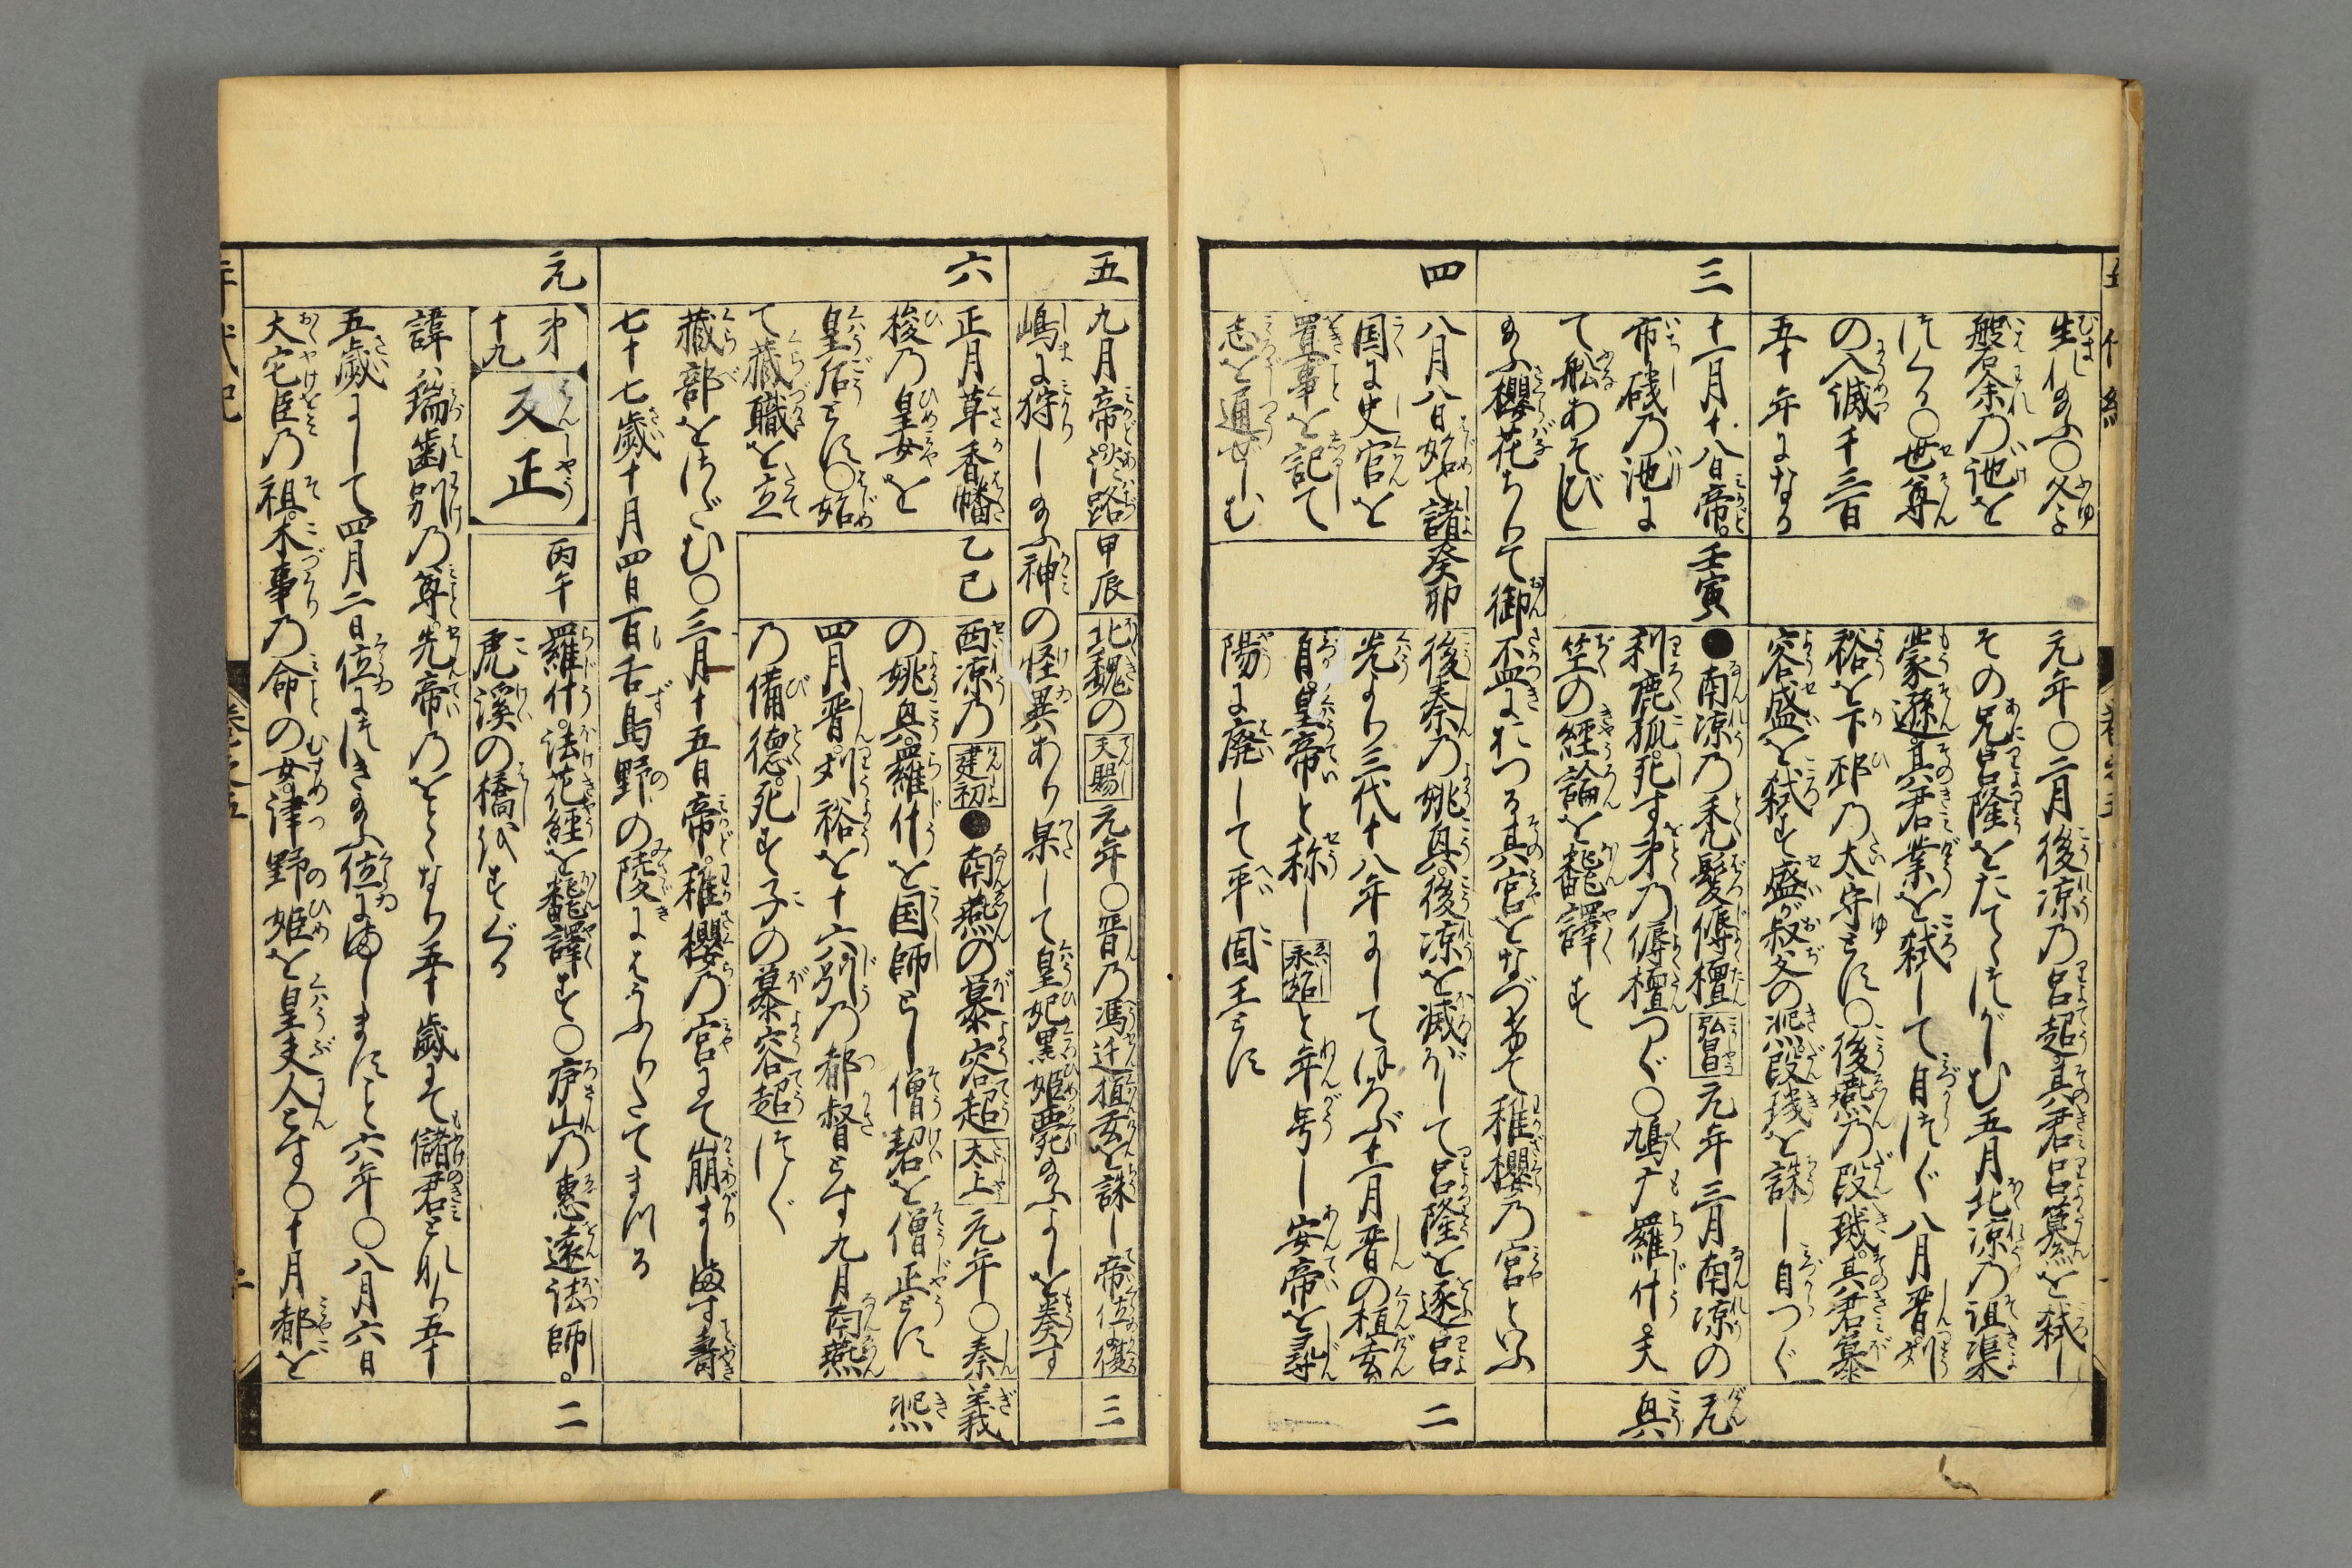 生れ給ふ〇冬
磐余乃池を
つくる〇世尊
の入滅千三百
五十年になる
元年〇二月後凉乃呂超其君呂纂を弑し
その兄呂隆をたてつがしむ五月北凉乃沮渠
蒙遜其君業を弑して自つぐ八月晋刘
裕を下邳乃太守とす〇後燕乃段璣其君慕
容盛を弑す盛が叔父の熙段璣を誅し自つぐ
三
十一月十八日帝
市磯乃池に
て舩あそびし
給ふ櫻花ちりて御盃におつる其宮となづけて稚櫻乃宮といふ
壬寅
●南凉乃禿髪傉檀弘昌元年三月南凉の
利鹿孤死す弟乃傉檀つぐ〇鳩广羅什天
竺の經論を飜譯す
元
興
四
八月八日始て諸
国に史官を
置事を記て
志を通ぜしむ
癸卯
後秦乃姚興後凉を滅ぼして呂隆を逐呂
光より三代十八年にしてほろぶ十二月晋の桓玄
自皇帝と称し永始と年号し安帝を尋
陽に廃して平固王とす
二
五
九月帝淡路
嶋に狩し給ふ神の怪異あり果して皇妃黒姫薨給ふよしを奏す
甲辰
北魏の天賜元年〇晋乃馮迁桓玄を誅し帝位復
三
六
正月草香幡
梭乃皇女を
皇后とす〇始
て藏職を立
藏部をさだむ〇三月十五日帝稚櫻乃宮にて崩まします壽
七十七歳十月四日百舌鳥野の陵にはふりたてまつる
乙巳
西凉乃建初●南燕の慕容超太上元年〇秦
の姚興羅什を国師とし僧䂮を僧正とす
四月晋刘裕を十六州乃都督とす九月南燕
乃備德死す子の慕容超つぐ
義
熙
元
第十九
反正
丙午
羅什法花經を飜譯す〇庐山乃惠遠法師
虎溪の橋をすぐる
二
諱瑞歯別乃尊先帝乃をとゝなり五十歳にて儲君となり五十
五歳にして四月二日位につき給ふ位にましますこと六年〇八月六日
大宅臣乃祖木事乃命の女津野姫を皇夫人とす〇十月都を
年代記
巻之五
二